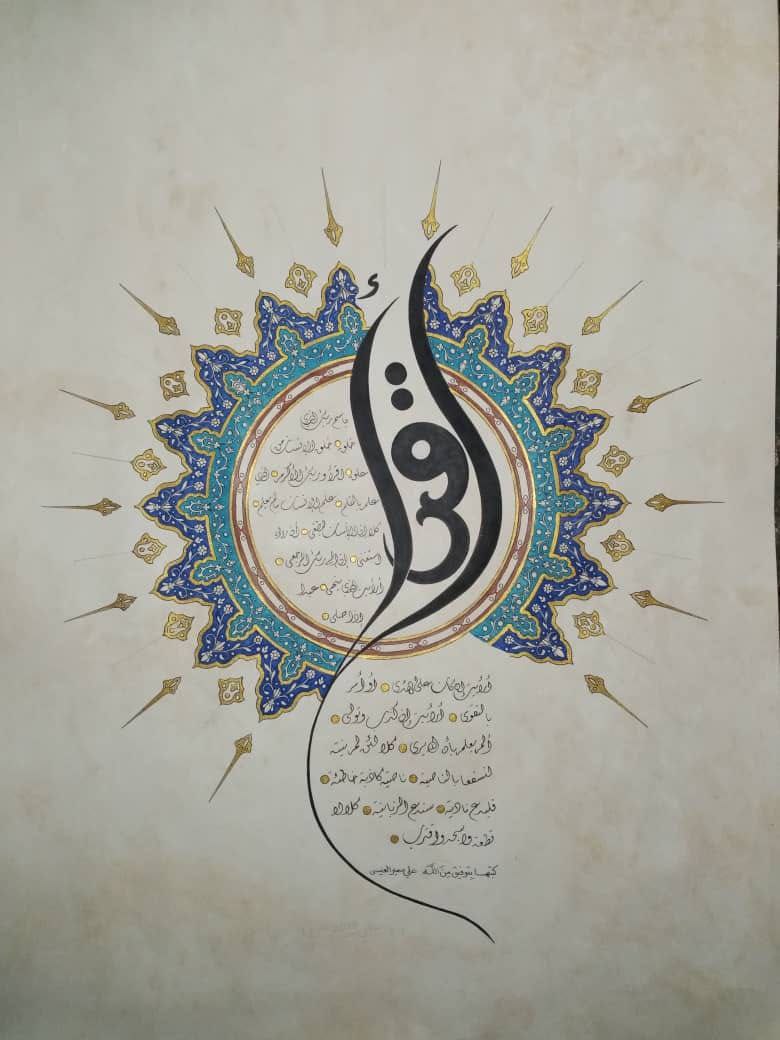 اقرأ
باسم ربك الذي
خلق خلق الإنسان من
علق اقرأ وربك الأكرم الذي
علم بالقلم علم الإنسان مالم يعلم
كلا إن الإنسان ليطغى أن رءاه
استغنى إن إلى ربك الرجعى
أرأيت الذي ينهى عبدا
إذا صلى
أرأيت إن كان على الهدى أو أمر
بالتقوى أرأيت إن كذب وتولى
ألم يعلم بأن الله يرى كلا لئن لم ينته
لنسفعا بالناصية ناصية كاذبة خاطئة
فليدع ناديه سندع الزبانية كلا لا
تطعه واسجد واقترب
كتبها بتوفيق من الله علي